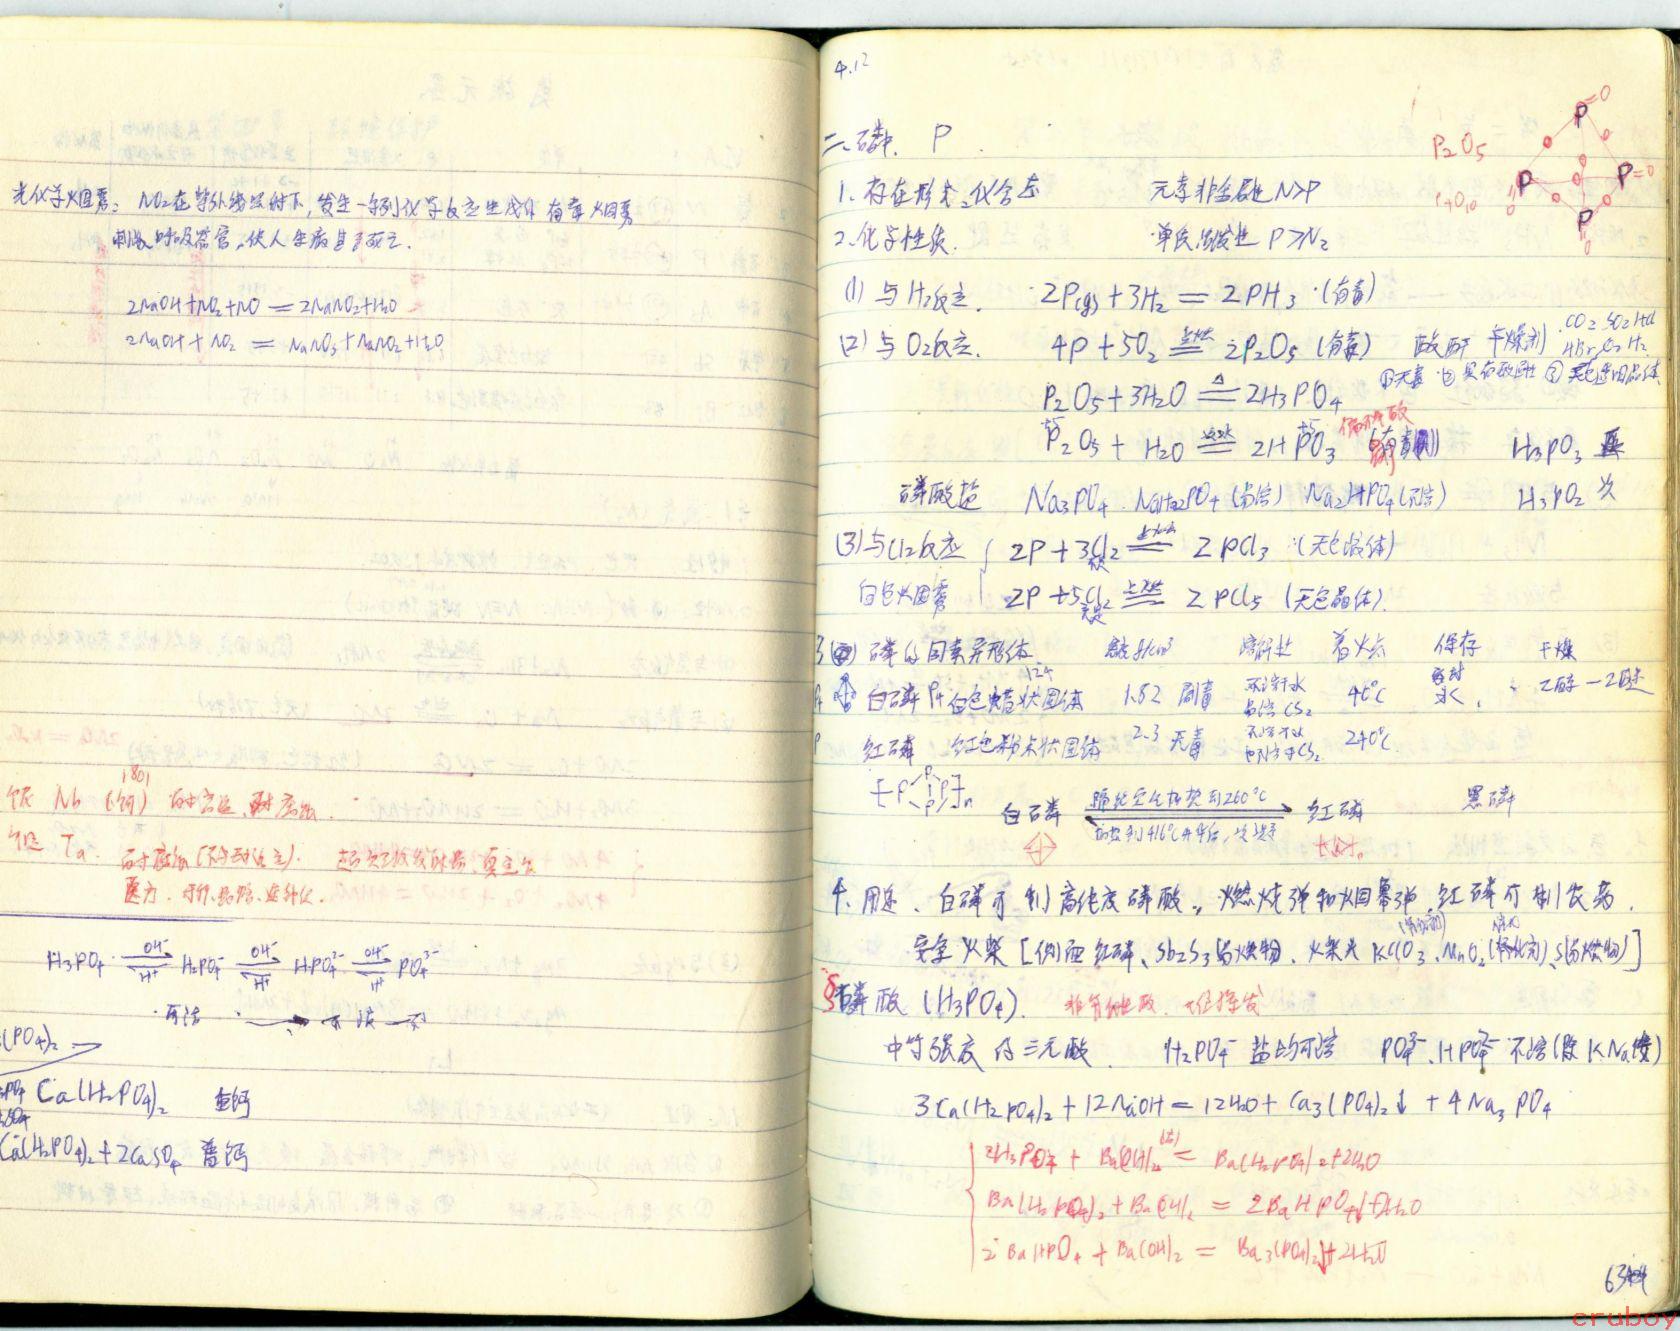 光化学烟雾: NO2在紫外线照射下,发生一系列化学反应生成 有毒烟雾
刺激呼吸器官,使人生病甚至死亡.
2NaOH+NO2+NO = 2NaNO2+H2O
2NaOH+NO2 = NaNO3+NaNO2+H2O
铌 Nb (1801) 耐高温,耐腐蚀.
钽 Ta.
H3PO4 ⇌ H2PO4⁻ ⇌ HPO4²⁻ ⇌ PO4³⁻
OH⁻ OH⁻ OH⁻
H⁺ H⁺ H⁺
可溶
(PO4)2
Ca(H2PO4)2 重钙
Ca(H2PO4)2+2CaSO4 普钙
4.12
二、磷. P
P2O5
P4O10
1. 存在形式:化合态 元素非金属性 N>P
2.化学性质. 单质活泼性 P>N2
(1) 与H2反应. 2P(g)+3H2 = 2PH3 (有毒)
(2) 与O2反应. 4P+5O2 =点燃= 2P2O5 (有毒) 酸酐 干燥剂 CO2 SO2 HCl
HBr O2 H2
P2O5+3H2O =△= 2H3PO4 ①无毒 ②具有吸湿性 ③无色透明晶体
P2O5+H2O =冷水= 2HPO3 偏磷酸 (有毒) H3PO3 亚
磷酸盐 Na3PO4. NaH2PO4(易溶) Na2HPO4(可溶) H3PO2 次
(3)与Cl2反应 2P+3Cl2 =点燃= 2PCl3 (无色液体)
白色烟雾 2P+5Cl2 =点燃= 2PCl5 (无色晶体).
3 磷的同素异形体 密度g/cm³ 溶解性 着火点 保存 干燥
白磷 P4 白色蜡状固体 124 1.82 剧毒 不溶于水 易溶CS2 40°C 密封 水. 乙醇—乙醚
红磷 红色粉末状固体 2.3 无毒 不溶于水 也不溶于CS2 240°C
白磷 隔绝空气加热到260°C 红磷 黑磷
加热到416°C升华后,冷凝
4.用途. 白磷可制高纯度磷酸, 燃烧弹和烟幕弹,红磷可制农药.
安全火柴 [侧面红磷、Sb2S3易燃物. 火柴头 KClO3、MnO2(催化剂)、S(易燃物)]
5磷酸 (H3PO4). 非氧化性酸.
中等强度的三元酸. H2PO4⁻ 盐均可溶 PO4³⁻、HPO4²⁻ 不溶(除K Na铵)
3Ca(H2PO4)2+12NaOH = 12H2O+Ca3(PO4)2↓+4Na3PO4
2H3PO4 + Ba(OH)2 = Ba(H2PO4)2+2H2O
Ba(H2PO4)2+Ba(OH)2 = 2BaHPO4↓+2H2O
2BaHPO4+Ba(OH)2 = Ba3(PO4)2↓+2H2O
cruboy